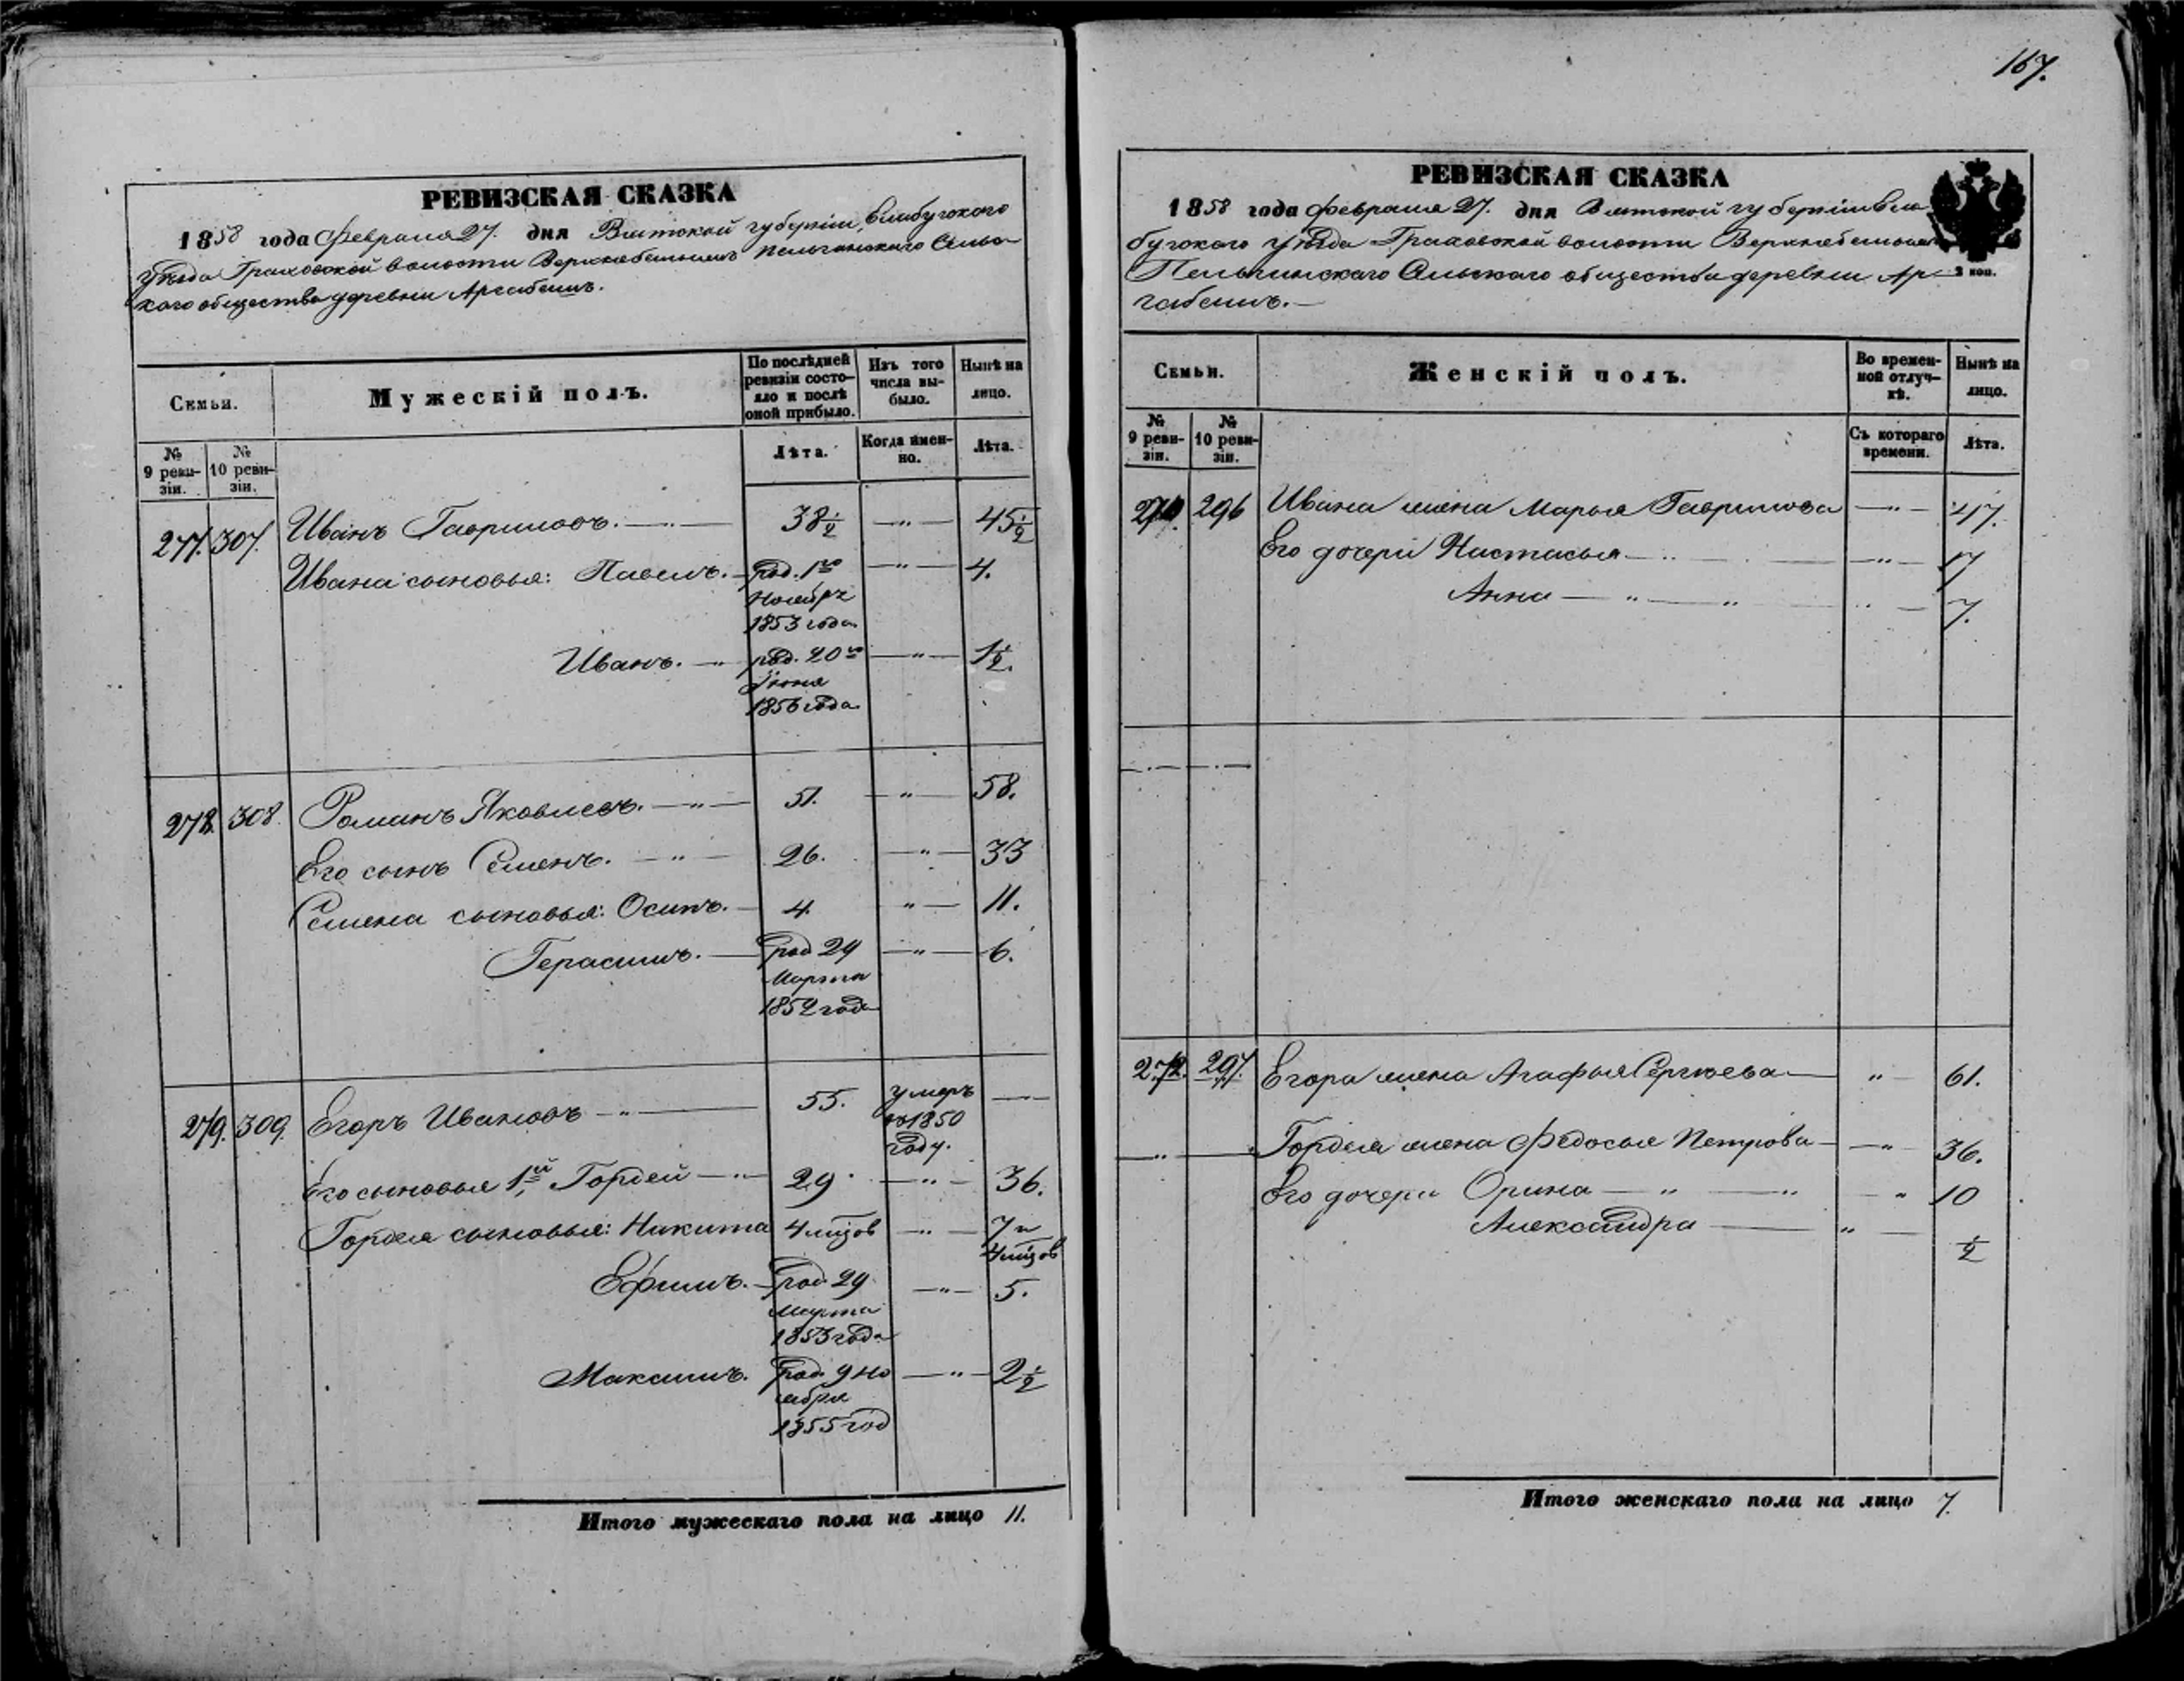 167.
РЕВИЗСКАЯ СКАЗКА
1858 года Февраля 27. дня Вятской губернiи, Елабугскаго
уѣзда Граховской волости Верхнебемышъ Пельгинскаго Сельс-
каго общества деревни Арсабешъ.
Семьи.
Мужескiй полъ.
По послѣдней ревизiи состо-
яло и послѣ оной прибыло.
Изъ того числа вы-
было.
Нынѣ на лицо.
№ 9 реви-
зiи.
№ 10 реви-
зiи.
Лѣта.
Когда имен-
но.
Лѣта.
277. 307. Иванъ Гавриловъ. — " — 38½ — " — 45½
Ивана сыновья: Павелъ. — род. 1го — " — 4.
Ноября
1853 года
Иванъ. — " род. 20го — " — 1½.
Iюня
1856 года
278. 308. Романъ Яковлевъ. — " — 51. — " — 58.
Его сынъ Семенъ. — " — 26. — " — 33
Семена сыновья: Осипъ. — 4. " — 11.
Герасимъ. — род 29 — " — 6.
Марта
1852 года
279. 309. Егоръ Ивановъ — " — 55. умеръ —
въ 1850
году.
Его сыновья 1й Гордей — " 29. — " — 36.
Гордея сыновья: Никита 4 мцзов — " — 7 и
4 мцзов
Ефимъ. — род. 29 — " — 5.
Марта
1853 года
Максимъ. род. 9 Но — " — 2½
ября
1855 год
Итого мужескаго пола на лицо 11.
РЕВИЗСКАЯ СКАЗКА
1858 года Февраля 27. дня Вятской губернiи Ела
бугскаго уѣзда Граховской волости Верхнебемышъ
Пельгинскаго Сельскаго общества деревни Ар-
3 коп.
сабешъ. —
Семьи.
Женскiй полъ.
Во времен-
ной отлуч-
кѣ.
Нынѣ на лицо.
№ 9 реви-
зiи.
№ 10 реви-
зiи.
Съ котораго времени.
Лѣта.
296 Ивана жена Марья Гаврилова — " — 47.
Его дочери Настасья — " — — " — 17
Анна — " — " — " — 7.
272. 297. Егора жена Агафья Сергѣева — " — 61.
— " — Гордея жена Федосья Петрова — — " — 36.
Его дочери Орина — " — " — " 10
Александра — " — ½
Итого женскаго пола на лицо 7.